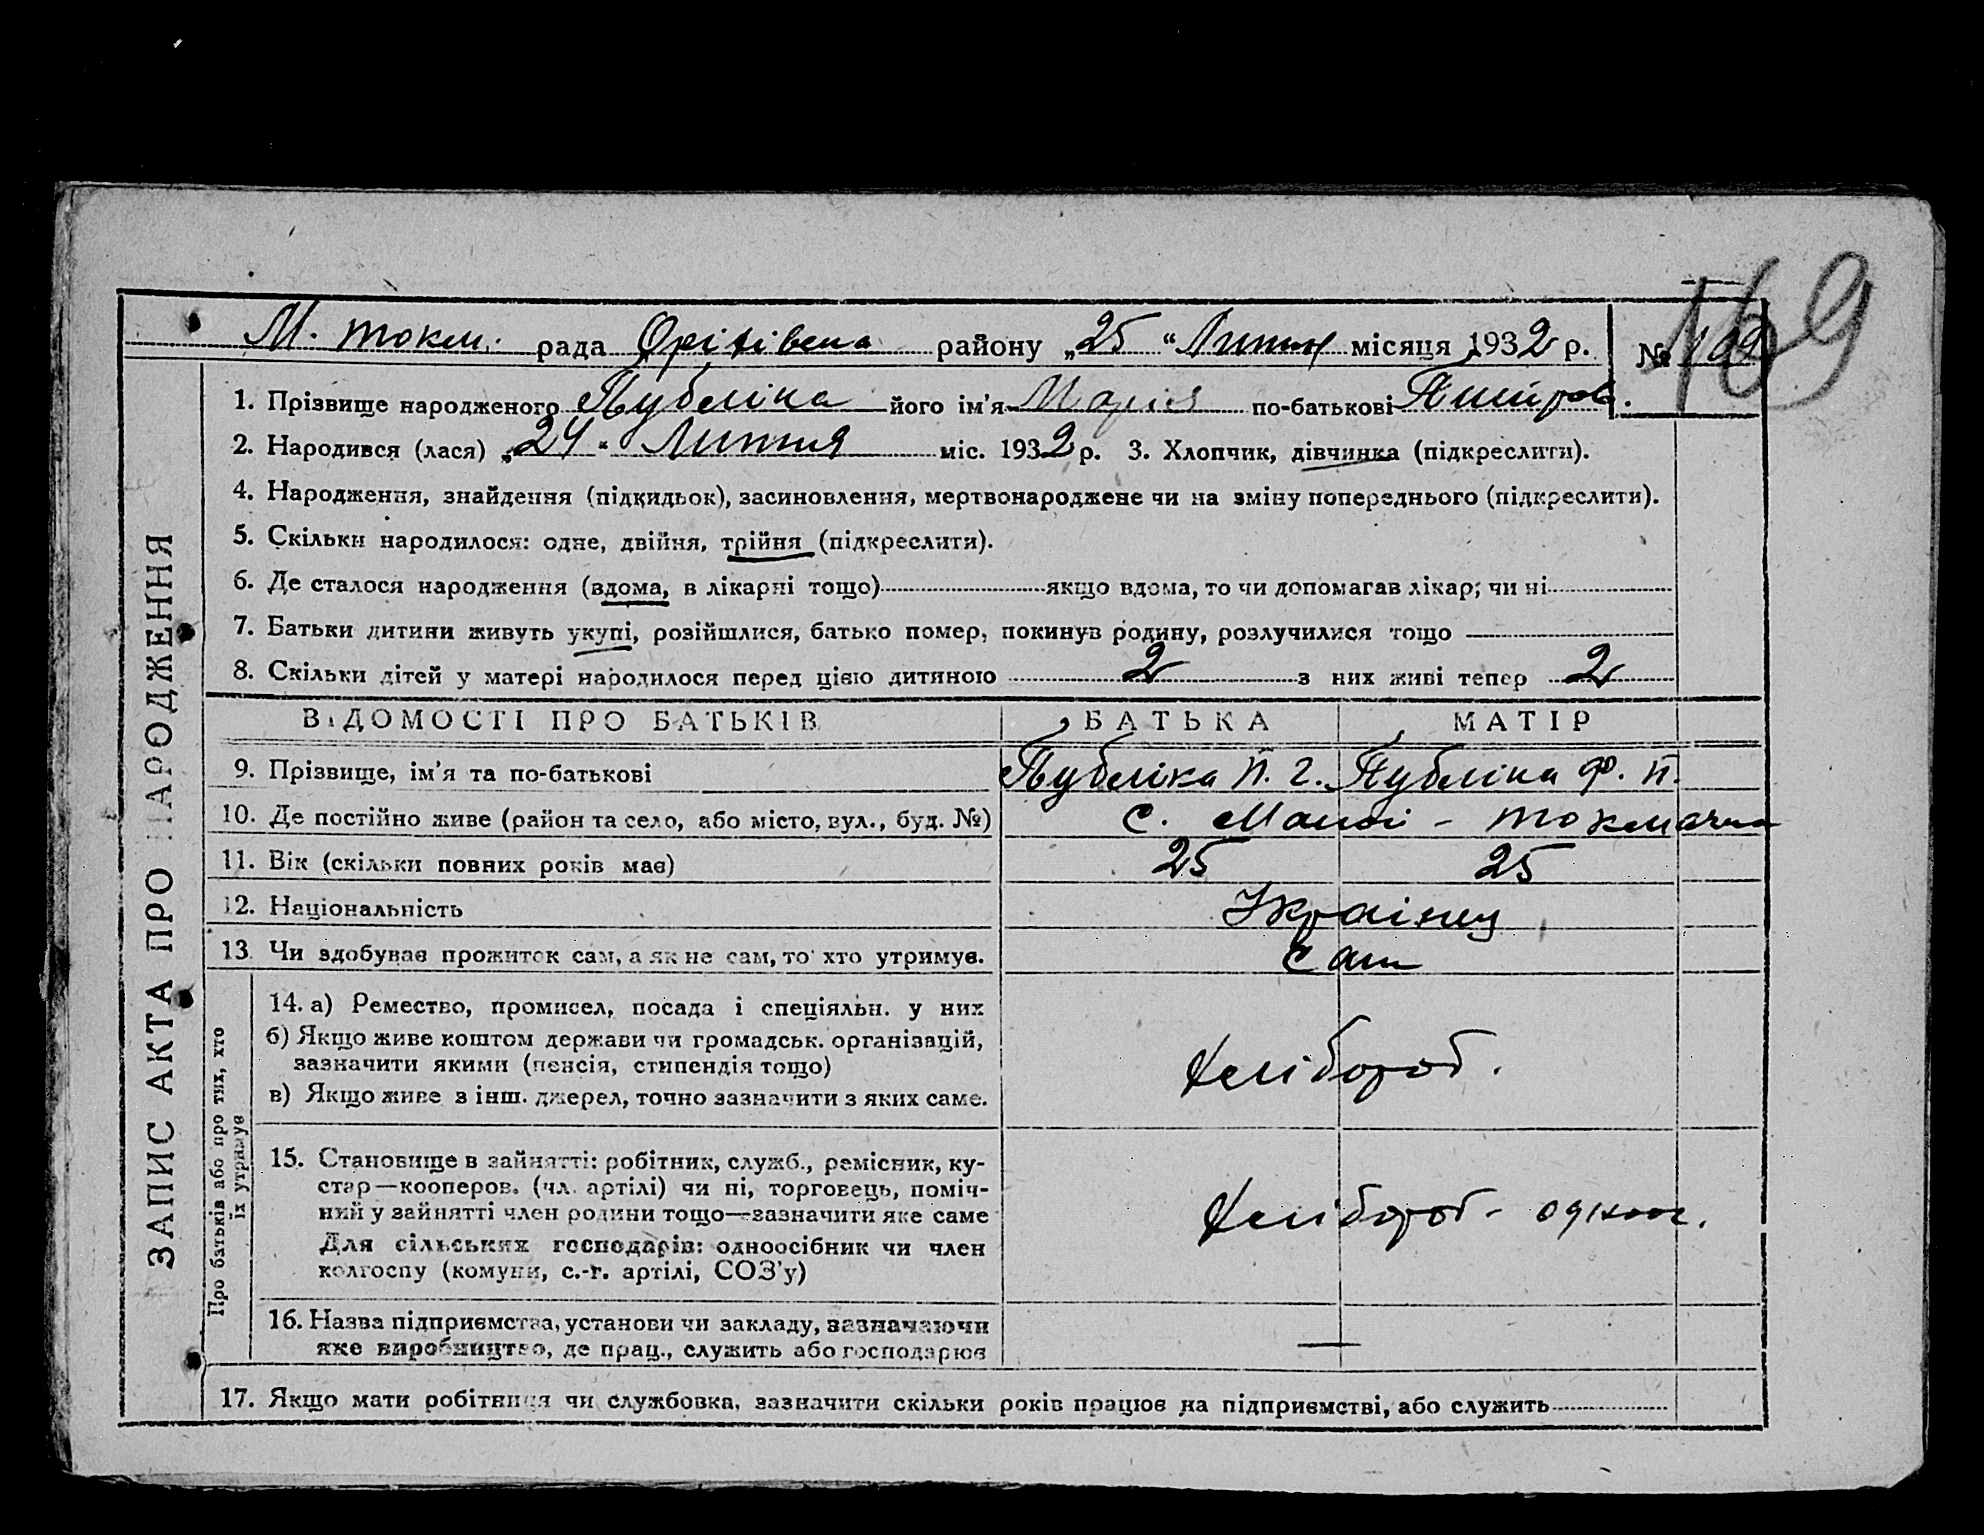 169
М. токм. рада Оріхівська району „25 “ Липня місяця 1932 р. №
1. Прізвище народженого Публіка його ім’я Марія по-батькові
2. Народився (лася) „24“ Липня міс. 1932 р. 3. Хлопчик, дівчинка (підкреслити).
4. Народження, знайдення (підкидьок), засиновлення, мертвонароджене чи на зміну попереднього (підкреслити).
5. Скільки народилося: одне, двійня, трійня (підкреслити).
6. Де сталося народження (вдома, в лікарні тощо) якщо вдома, то чи допомагав лікар; чи ні
7. Батьки дитини живуть укупі, розійшлися, батько помер, покинув родину, розлучилися тощо
8. Скільки дітей у матері народилося перед цією дитиною 2 з них живі тепер 2
ВІДОМОСТІ ПРО БАТЬКІВ БАТЬКА МАТІР
9. Прізвище, ім’я та по-батькові Публіка П. Г. Публіка Ф. П.
10. Де постійно живе (район та село, або місто, вул., буд. №) с. Малої - токмачка
11. Вік (скільки повних років має) 25 25
12. Національність Українці
13. Чи здобуває прожиток сам, а як не сам, то хто утримує. сам
14. а) Ремество, промисел, посада і спеціяльн. у них
б) Якщо живе коштом держави чи громадськ. організацій,
зазначити якими (пенсія, стипендія тощо)
хлібороб.
в) Якщо живе з інш. джерел, точно зазначити з яких саме.
15. Становище в зайнятті: робітник, служб., ремісник, ку-
стар—кооперов. (чл. артілі) чи ні, торговець, поміч-
ний у зайнятті член родини тощо—зазначити яке саме
хлібороб - одноос.
Для сільських господарів: одноосібник чи член
колгоспу (комуни, с.-г. артілі, СОЗ’у)
16. Назва підприємства, установи чи закладу, зазначаючи
яке виробництво, де прац., служить або господарює —
17. Якщо мати робітниця чи службовка, зазначити скільки років працює на підприємстві, або служить
ЗАПИС АКТА ПРО НАРОДЖЕННЯ
Про батьків або про тих, хто
їх утримує